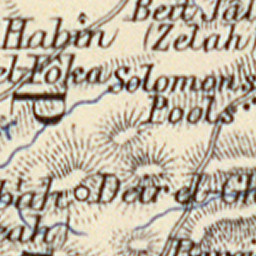 Beit Jal
Habin
(Zelah)
el-Foka
Solomon's
Pools
D
bah
Deir el-Gh
eah